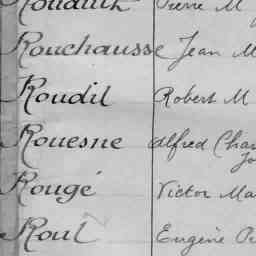 Pierre M
Rouchausse Jean M
Roudil Robert M
Rouesne Alfred Char
Rougé Victor Ma
Roul Eugène Pi